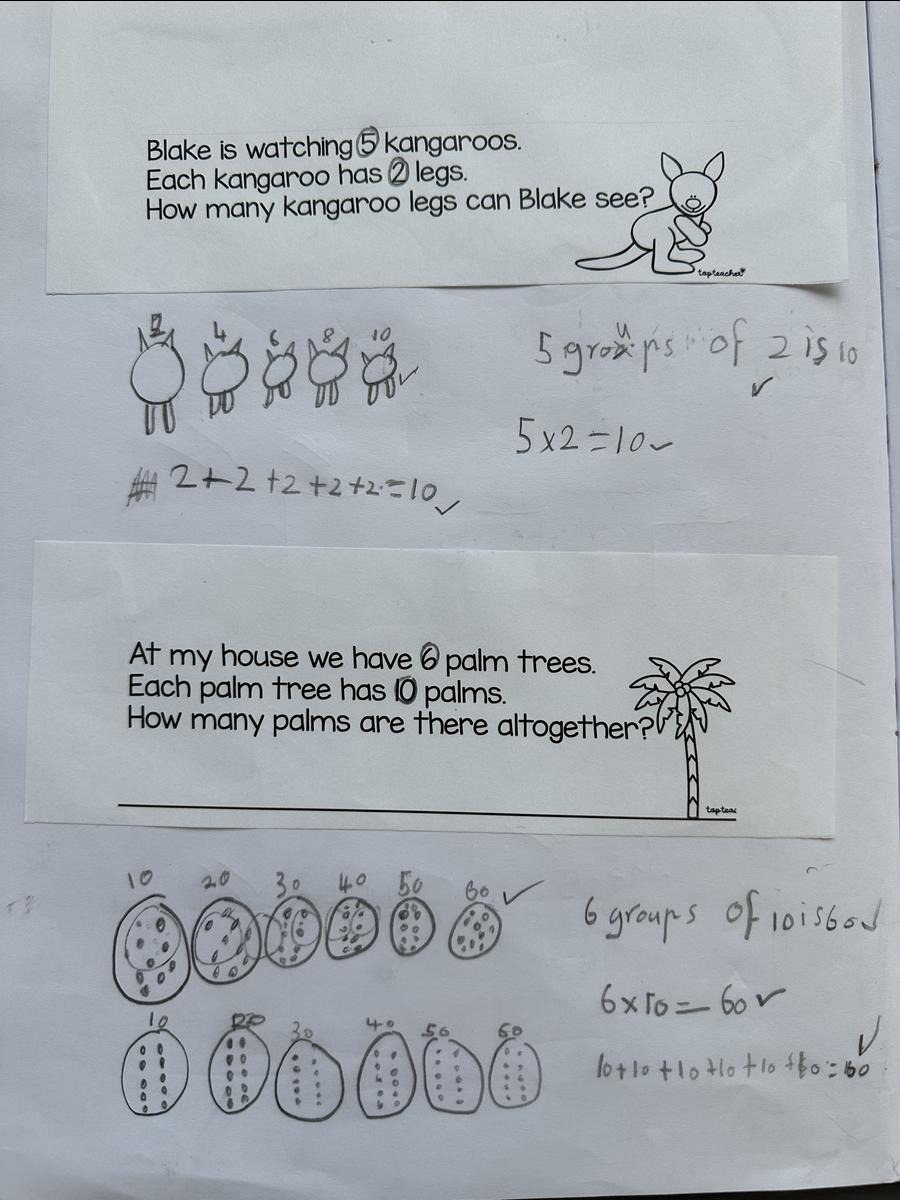 Blake is watching 5 kangaroos.
Each kangaroo has 2 legs.
How many kangaroo legs can Blake see?
tapteacher
2 4 6 8 10
5 groups of 2 is 10
5x2=10
2+2+2+2+2=10
At my house we have 6 palm trees.
Each palm tree has 10 palms.
How many palms are there altogether?
tap teac
10 20 30 40 50 60
6 groups of 10 is 60
6x10=60
10 20 30 40 50 60
10+10+10+10+10+10=60